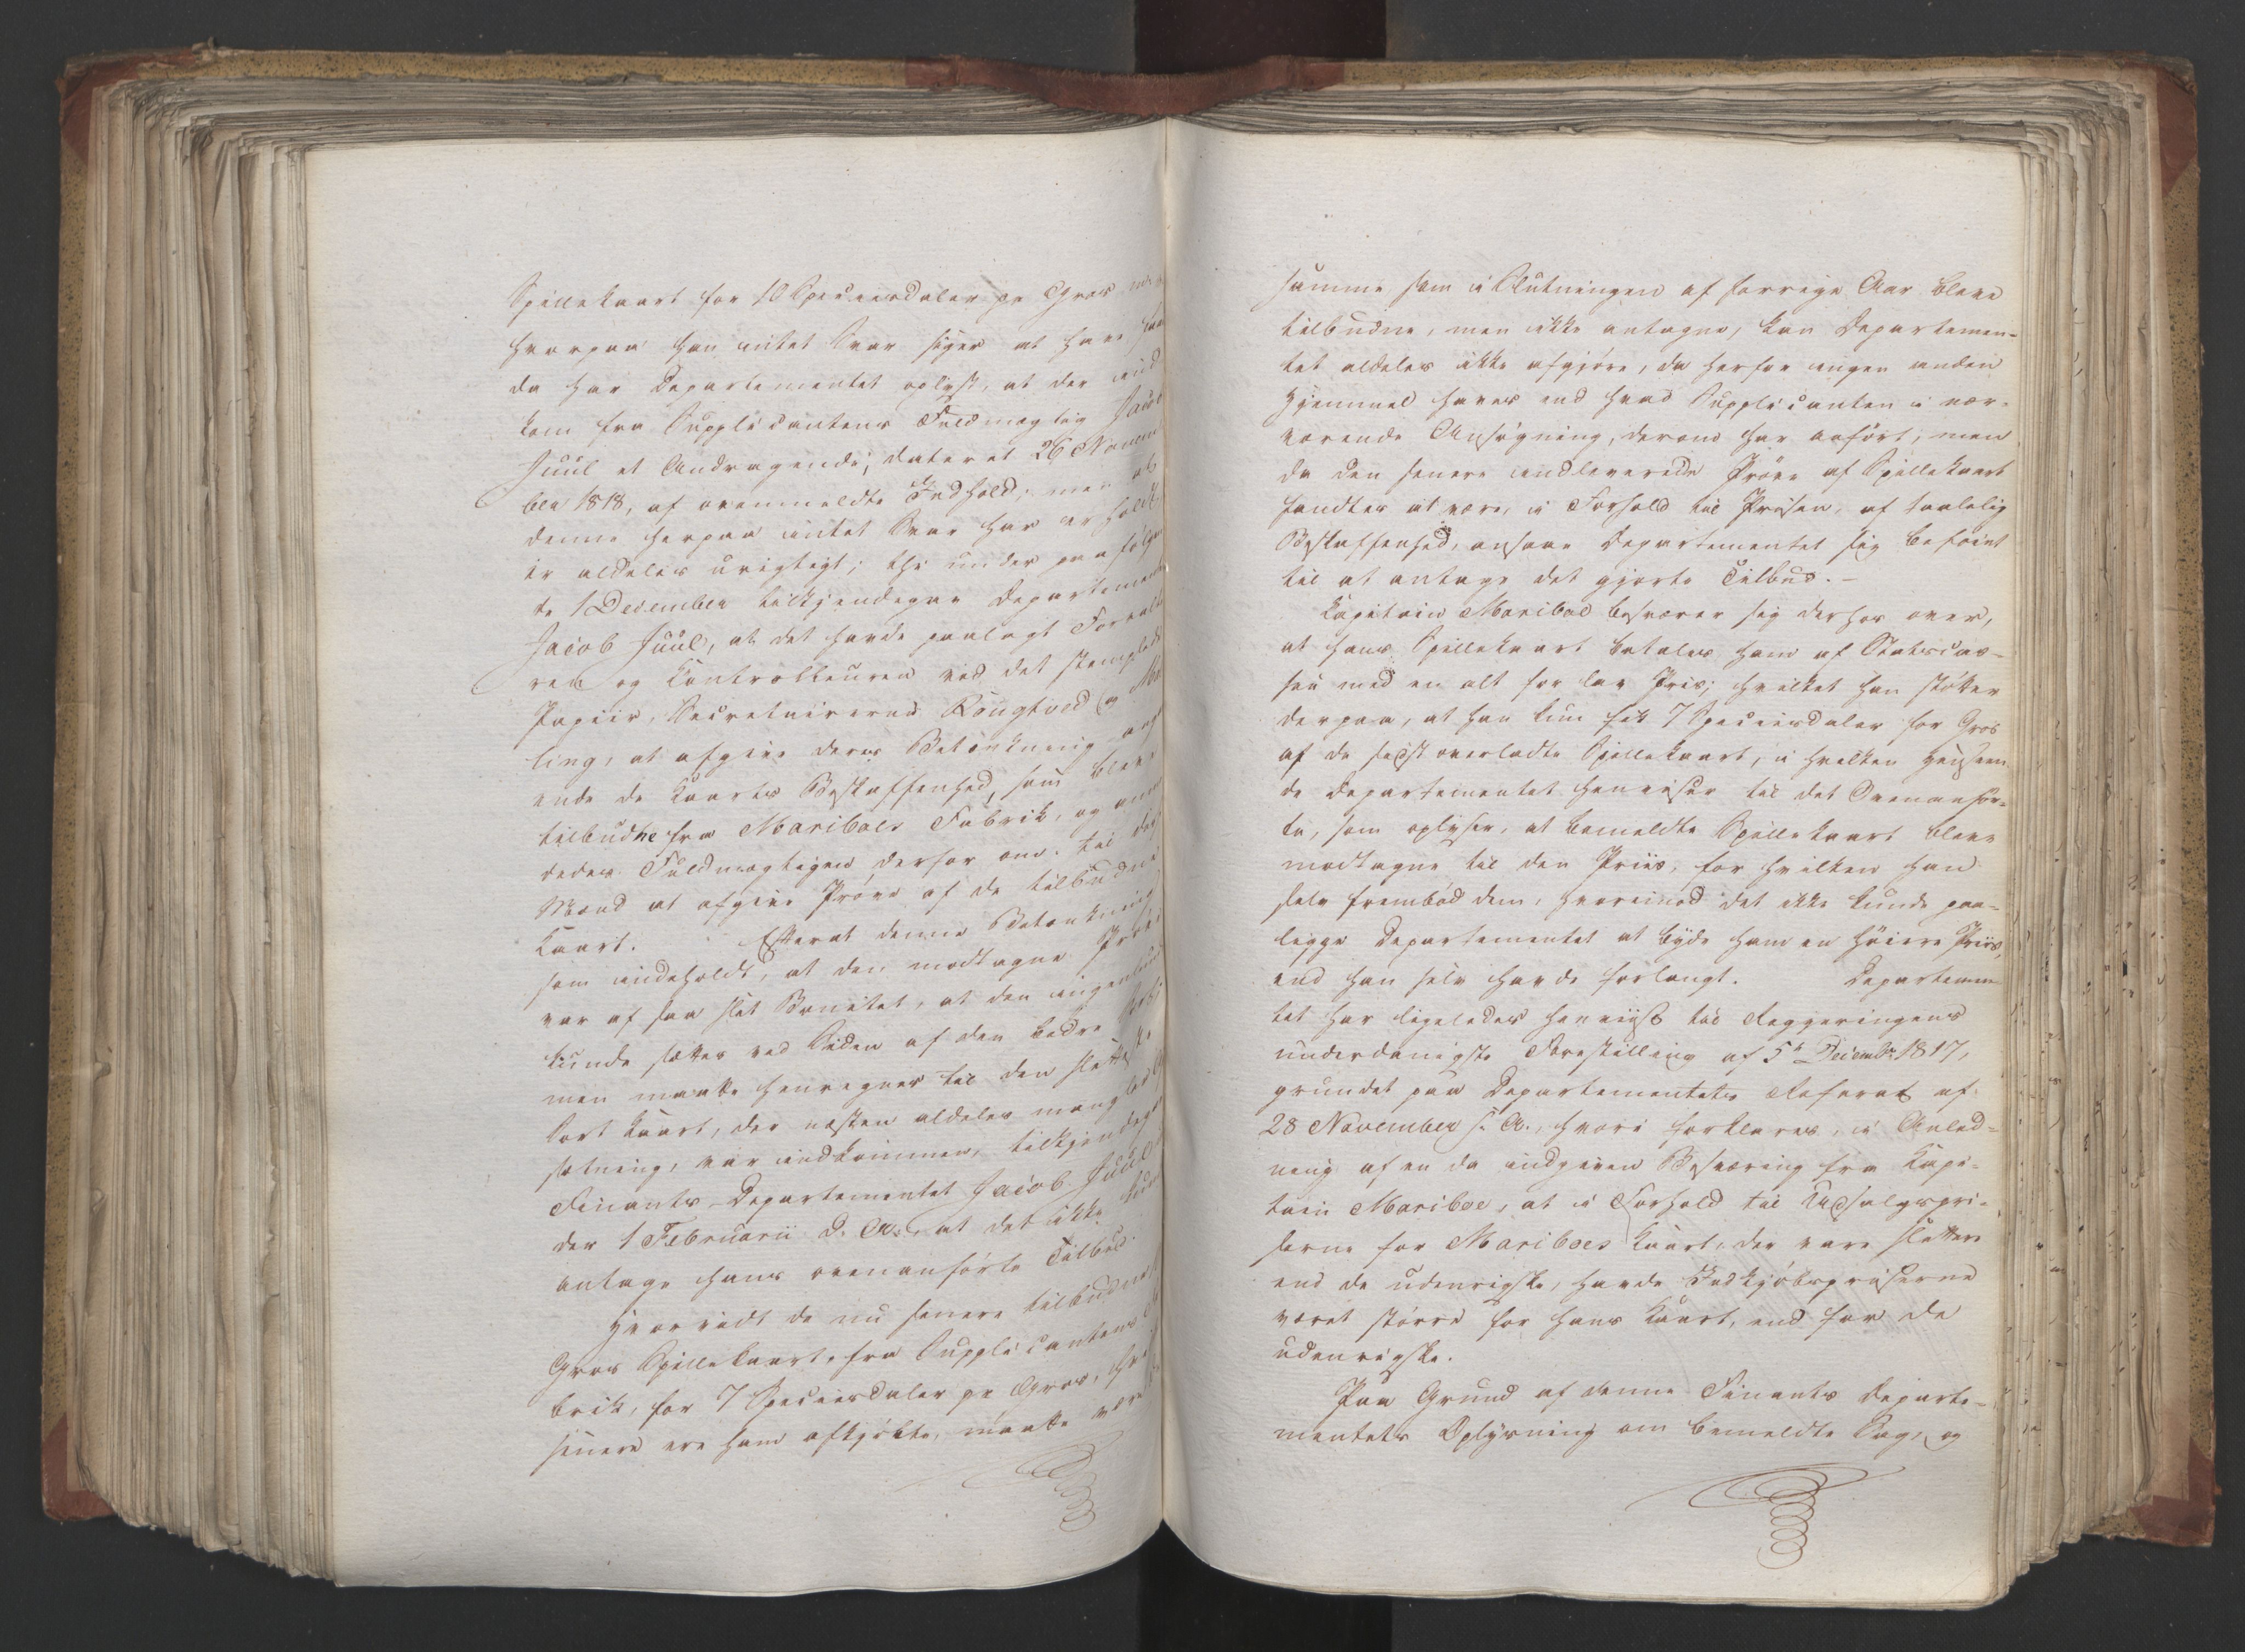 Spillekaart for 10 Speciesdaler pr Gros
hvorpaa han intet Svar siger at have
da har Departementet oplyst, at der ind
kom fra Supplicantens Fuldmægtig Jacob
Juul et Andragende, dateret 26 Novem
ber 1818, af ovenmeldte Indhold; men at
denne herpaa intet Svar har erholdt
er aldeles urigtigt; thi under paafølgen
de 1 December tilkjendegav Departementet
Jacob Juul, at det havde paalagt Forvalte
ren og Kontrolleuren ved det stemplede
Papiir, Secretairerne Rougtved og
ling, at afgive deres Betænkning ang
ende de Kaarts Beskaffenhed, som bleve
tilbudne fra Mariboes Fabrik, og anmo
dedes Fuldmægtigen derfor om til disse
Mænd at afgive Prøve af de tilbudne
Kaart. Efterat denne Betænkning
som indeholdt, at den modtagne Prøve
var af saa slet Bonitet, at den ingenlunde
kunde sættes ved Siden af den bedre
men maatte henregnes til den sletteste
Sort Kaart, der næsten aldeles mangler
sætning, var indkommen, tilkjendegav
Finants-Departementet Jacob Juul
der 1 Februarii d. A., at det ikke kunde
antage hans ovenanførte Tilbud.
Hvorvidt de nu senere tilbudne
Gros Spillekaart, fra Supplicantens
brik, for 7 Speciesdaler pr Gros,
senere ere ham afkjøbte, maatte være
samme som i Slutningen af forrige Aar bleve
tilbudne, men ikke antagne, kan Departemen-
tet aldeles ikke afgjøre, da herfor ingen anden
Hjemmel haves end hvad Supplicanten i nær-
værende Ansøgning, derom har anført; men
da den senere indleverede Prøve af Spillekaart
fandtes at være, i Forhold til Prisen, af taalelig
Beskaffenhed, ansaae Departementet sig beføiet
til at antage det gjorte Tilbud. –
Kapitain Mariboe besværer sig derhos over,
at hans Spillekaart betales ham af Statscas-
sen med en alt for lav Pris; hvilket han støtter
derpaa, at han kun fik 7 Speciesdaler for Gros
af de sidst overladte Spillekaart, i hvilken Henseen
de Departementet henviser til det Ovenanfør-
te, som oplyser, at bemeldte Spillekaart bleve
modtagne til den Priis, for hvilken han
selv frembød dem, hvorimod det ikke kunde paa-
ligge Departementet at byde ham en høiere Priis,
end han selv havde forlangt. Departemen
tet har ligeledes henviist til Regjeringens
underdanigste Forestilling af 5te Decembr. 1817,
grundet paa Departementets Referat af
28 November s. A., hvori forklares, i Anled-
ning af en da indgiven Besværing fra Kapi-
tain Mariboe, at i Forhold til Udsalgspri-
serne for Mariboes Kaart, der vare slettere
end de udenrigske, havde Indkjøbspriserne
været større for hans Kaart, end for de
udenrigske.
Paa Grund af denne Finants Departe-
mentets Oplysning om bemeldte Sag, og